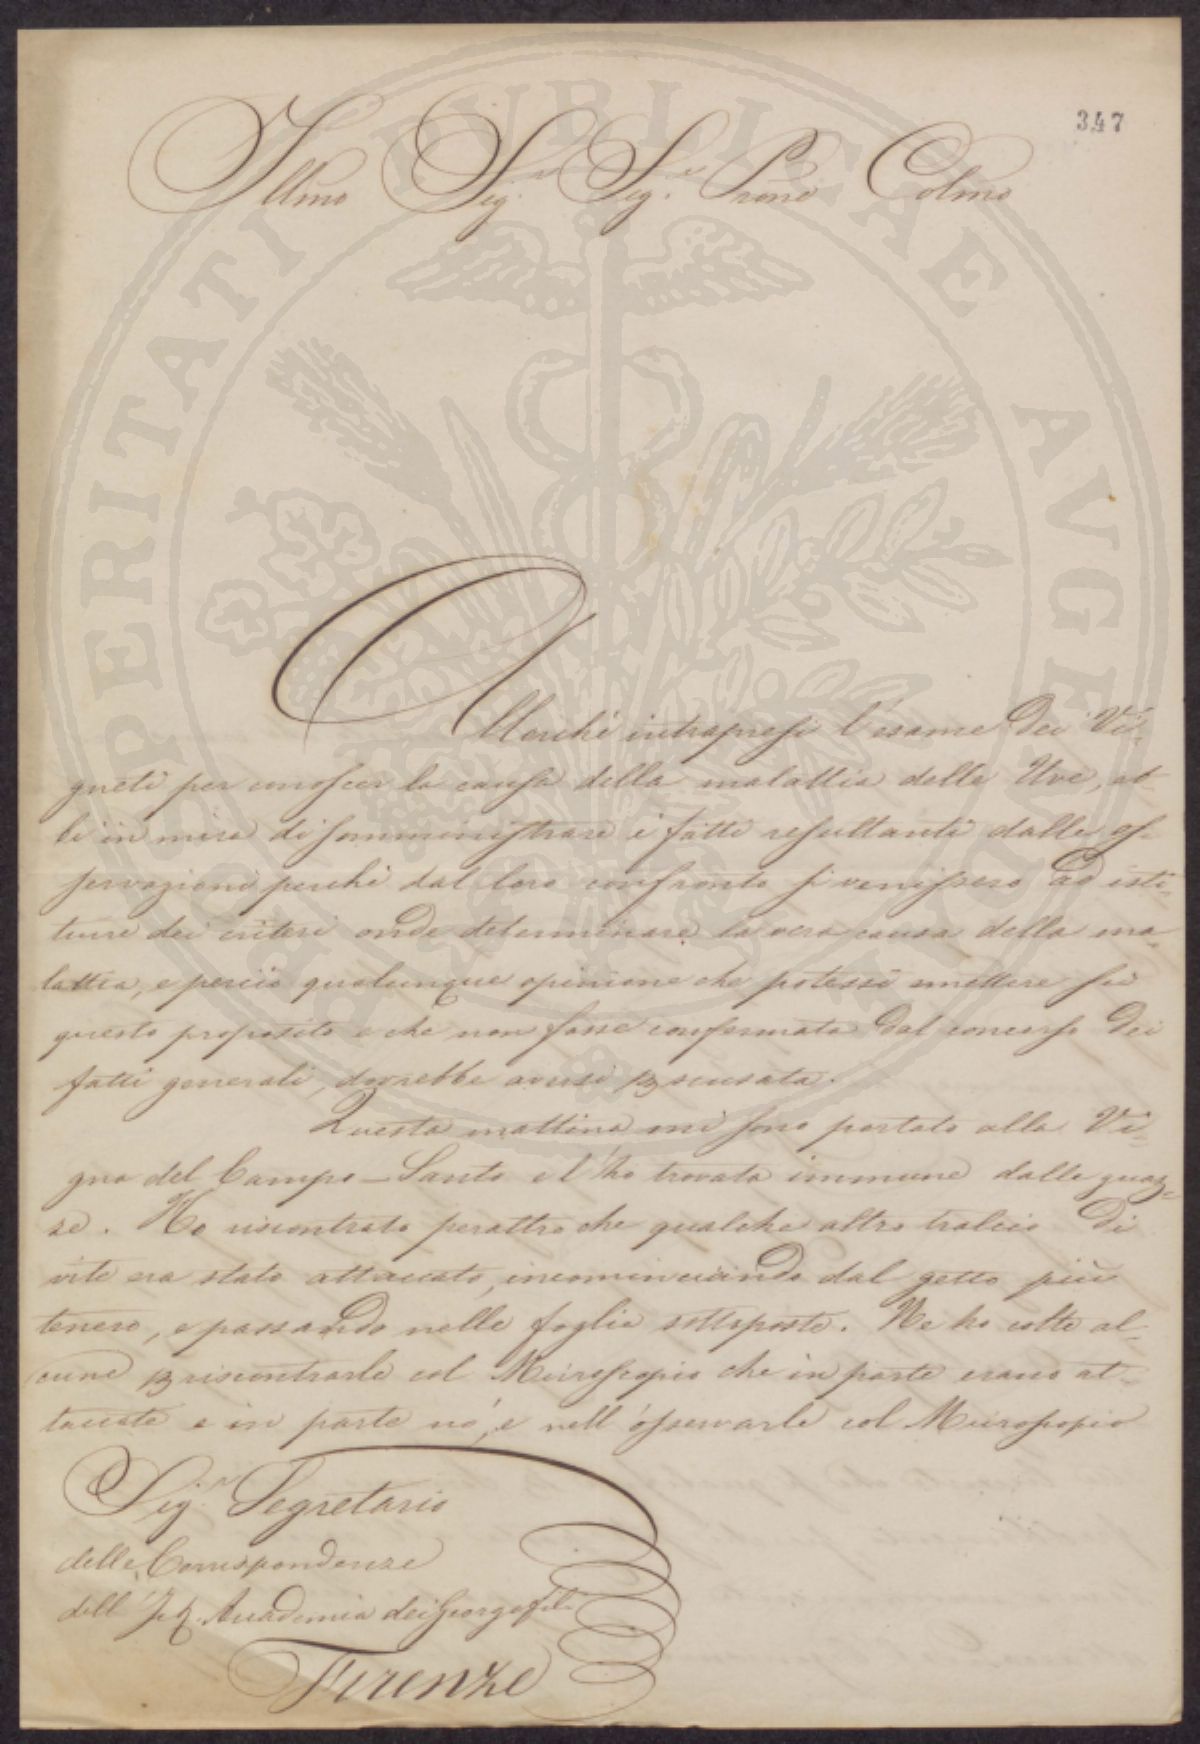 347
Illmo Sig.r Sig.e Prone Colmo
Allorchè intrapresi l'esame dei Vi-
gneti per conoscer la causa della malattia delle Uve, eb-
bi in mira di somministrare i fatti resultanti dalle os-
servazioni perchè dal loro confronto si venissero ad isti-
tuire dei criteri onde determinare la vera causa della ma-
lattia, e perciò qualunque opinione che potessi emettere su
questo proposito e che non fosse confermata dal concorso dei
fatti generali, dovrebbe aversi p scusata.
Questa mattina mi sono portato alla Vi-
gna del Campo-Santo e l'ho trovata immune dalle guaz-
ze. Ho riscontrato peraltro che qualche altro tralcio di
vite era stato attaccato, incominciando dal getto più
tenero, e passando nelle foglie sottoposte. Ne ho colte al-
cune p riscontrarle col Microscopio che in parte erano at-
taccate e in parte nò, e nell'osservarle col Microscopio
Sig.r Segretario
delle Corrispondenze
dell'I. e R. Accademia dei Georgofili
Firenze
PROSPERITATI PUBLICAE AVGENDAE